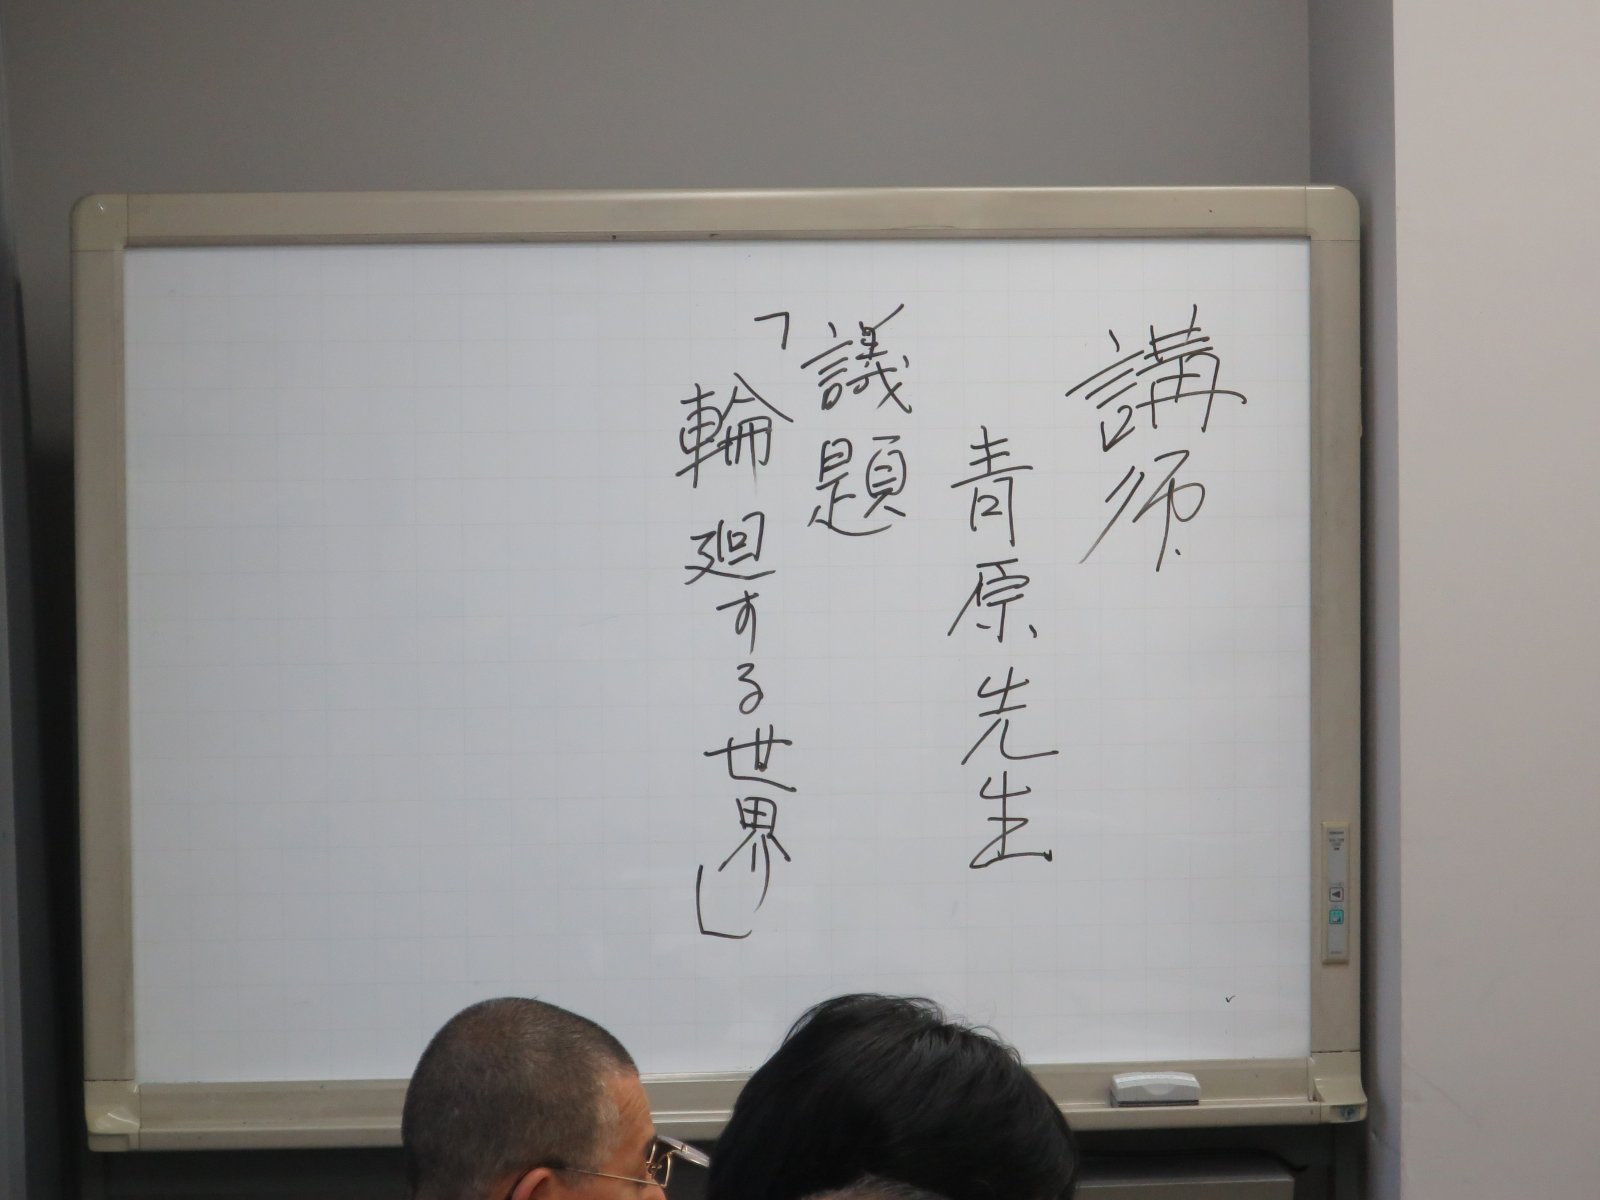 講師
青原先生
議題
「輪廻する世界」